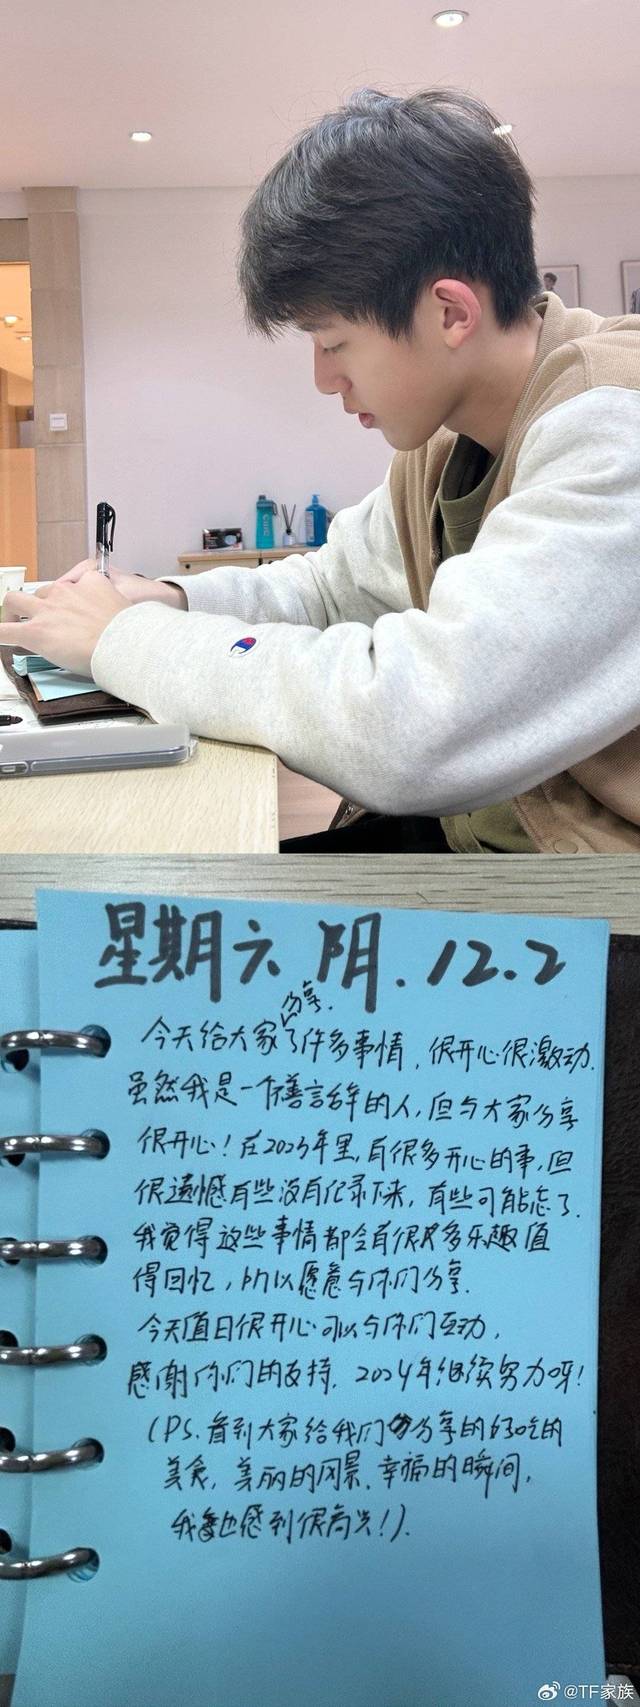 星期六 阴. 12.2
今天给大家分享了许多事情, 很开心很激动.
虽然我是一个不善言辞的人, 但与大家分享
很开心! 在2023年里, 有很多开心的事, 但
很遗憾有些没有记录下来, 有些可能忘了.
我觉得这些事情都会有很多乐趣值
得回忆, 所以愿意与你们分享.
今天值日很开心可以与你们互动,
感谢你们的支持. 2024年继续努力呀!
(PS. 看到大家给我们分享的好吃的
美食, 美丽的风景, 幸福的瞬间,
我也感到很高兴!).
@TF家族